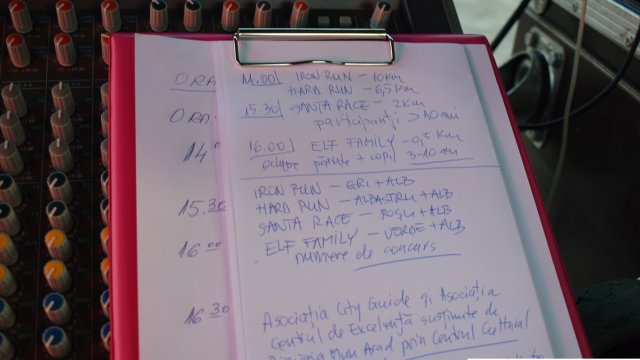 ORA
ORA:
14⁰
15.30
16⁰⁰
16 30
14.00 IRON RUN - 10 Km
HARD RUN - 6,5 Km
15.30 SANTA RACE - 2Km
participanți > 10 ani
16.00 ELF FAMILY - 0,5 Km
echipe părinte + copil 3-10 ani
IRON RUN - GRI + ALB
HARD RUN - ALBASTRU + ALB
SANTA RACE - ROȘU + ALB
ELF FAMILY - VERDE + ALB
numere de concurs
Asociația City Guide și Asociația
Centrul de Excelență susținute de
Arad prin Centrul Cultural